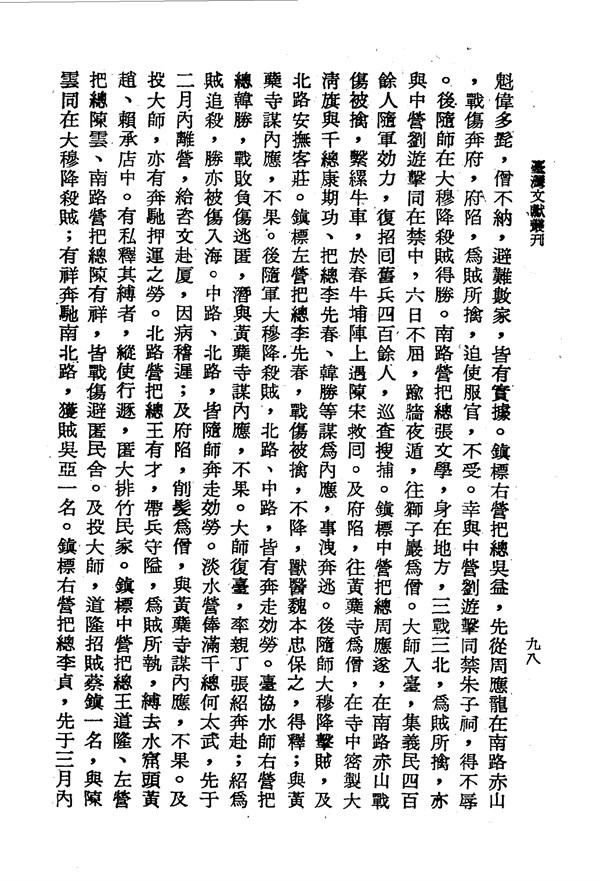 臺灣文獻叢刊
九八
魁偉多髭，僧不納，避難數家，皆有實據。鎮標右營把總吳益，先從周應龍在南路赤山
，戰傷奔府，府陷，爲賊所擒，迫使服官，不受。幸與中營劉遊擊同禁朱子祠，得不辱
。後隨師在大穆降殺賊得勝。南路營把總張文學，身在地方，三戰三北，爲賊所擒，亦
與中營劉遊擊同在禁中，六日不屈，踰牆夜遁，往獅子巖爲僧。大師入臺，集義民四百
餘人隨軍効力，復招同舊兵四百餘人，巡查搜捕。鎮標中營把總周應遂，在南路赤山戰
傷被擒，繫縲牛車，於春牛埔陣上遇陳宋救回。及府陷，往黃蘗寺爲僧，在寺中密製大
清旗與千總康期功、把總李先春、韓勝等謀爲內應，事洩奔逃。後隨師大穆降擊賊，及
北路安撫客莊。鎮標左營把總李先春，戰傷被擒，不降，獸醫魏本忠保之，得釋；與黃
蘗寺謀內應，不果。後隨軍大穆降殺賊，北路、中路，皆有奔走効勞。臺協水師右營把
總韓勝，戰敗負傷逃匿，潛與黃蘗寺謀內應，不果。大師復臺，率親丁張紹奔赴；紹爲
賊追殺，勝亦被傷入海。中路、北路，皆隨師奔走効勞。淡水營俸滿千總何太武，先于
二月內離營，給咨文赴厦，因病稽遲；及府陷，削髮爲僧，與黃蘗寺謀內應，不果。及
投大師，亦有奔馳押運之勞。北路營把總王有才，帶兵守隘，爲賊所執，縛去水窟頭黃
趙、賴承店中。有私釋其縛者，縱使行遯，匿大排竹民家。鎮標中營把總王道隆、左營
把總陳雲、南路營把總陳有祥，皆戰傷避匿民舍。及投大師，道隆招賊蔡鎮一名，與陳
雲同在大穆降殺賊；有祥奔馳南北路，獲賊吳亞一名。鎮標右營把總李貞，先于三月內